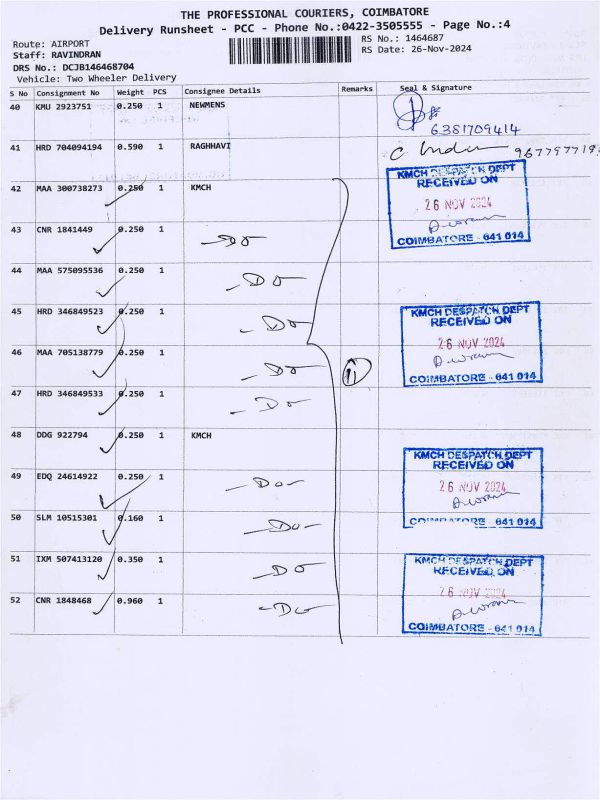 THE PROFESSIONAL COURIERS, COIMBATORE
Delivery Runsheet - PCC - Phone No.:0422-3505555 - Page No.:4
Route: AIRPORT
RS No.: 1464687
Staff: RAVINDRAN
RS Date: 26-Nov-2024
DRS No.: DCJB146468704
Vehicle: Two Wheeler Delivery
S No Consignment No Weight PCS Consignee Details Remarks Seal & Signature
40 KMU 2923751 0.250 1 NEWMENS
6381709414
41 HRD 704094194 0.590 1 RAGHHAVI
KMCH DESPATCH DEPT
RECEIVED ON
26 NOV 2024
COIMBATORE - 641 014
42 MAA 300738273 0.250 1 KMCH
43 CNR 1841449 0.250 1 -DO-
44 MAA 575095536 0.250 1 -DO-
45 HRD 346849523 0.250 1 -DO-
KMCH DESPATCH DEPT
RECEIVED ON
26 NOV 2024
COIMBATORE - 641 014
46 MAA 705138779 0.250 1 -DO-
11
47 HRD 346849533 0.250 1 -DO-
48 DDG 922794 0.250 1 KMCH
KMCH DESPATCH DEPT
RECEIVED ON
26 NOV 2024
COIMBATORE - 641 014
49 EDQ 24614922 0.250 1 -DO-
50 SLM 10515301 0.160 1 -DO-
51 IXM 507413120 0.350 1 -DO-
KMCH DESPATCH DEPT
RECEIVED ON
26 NOV 2024
COIMBATORE - 641 014
52 CNR 1848468 0.960 1 -DO-